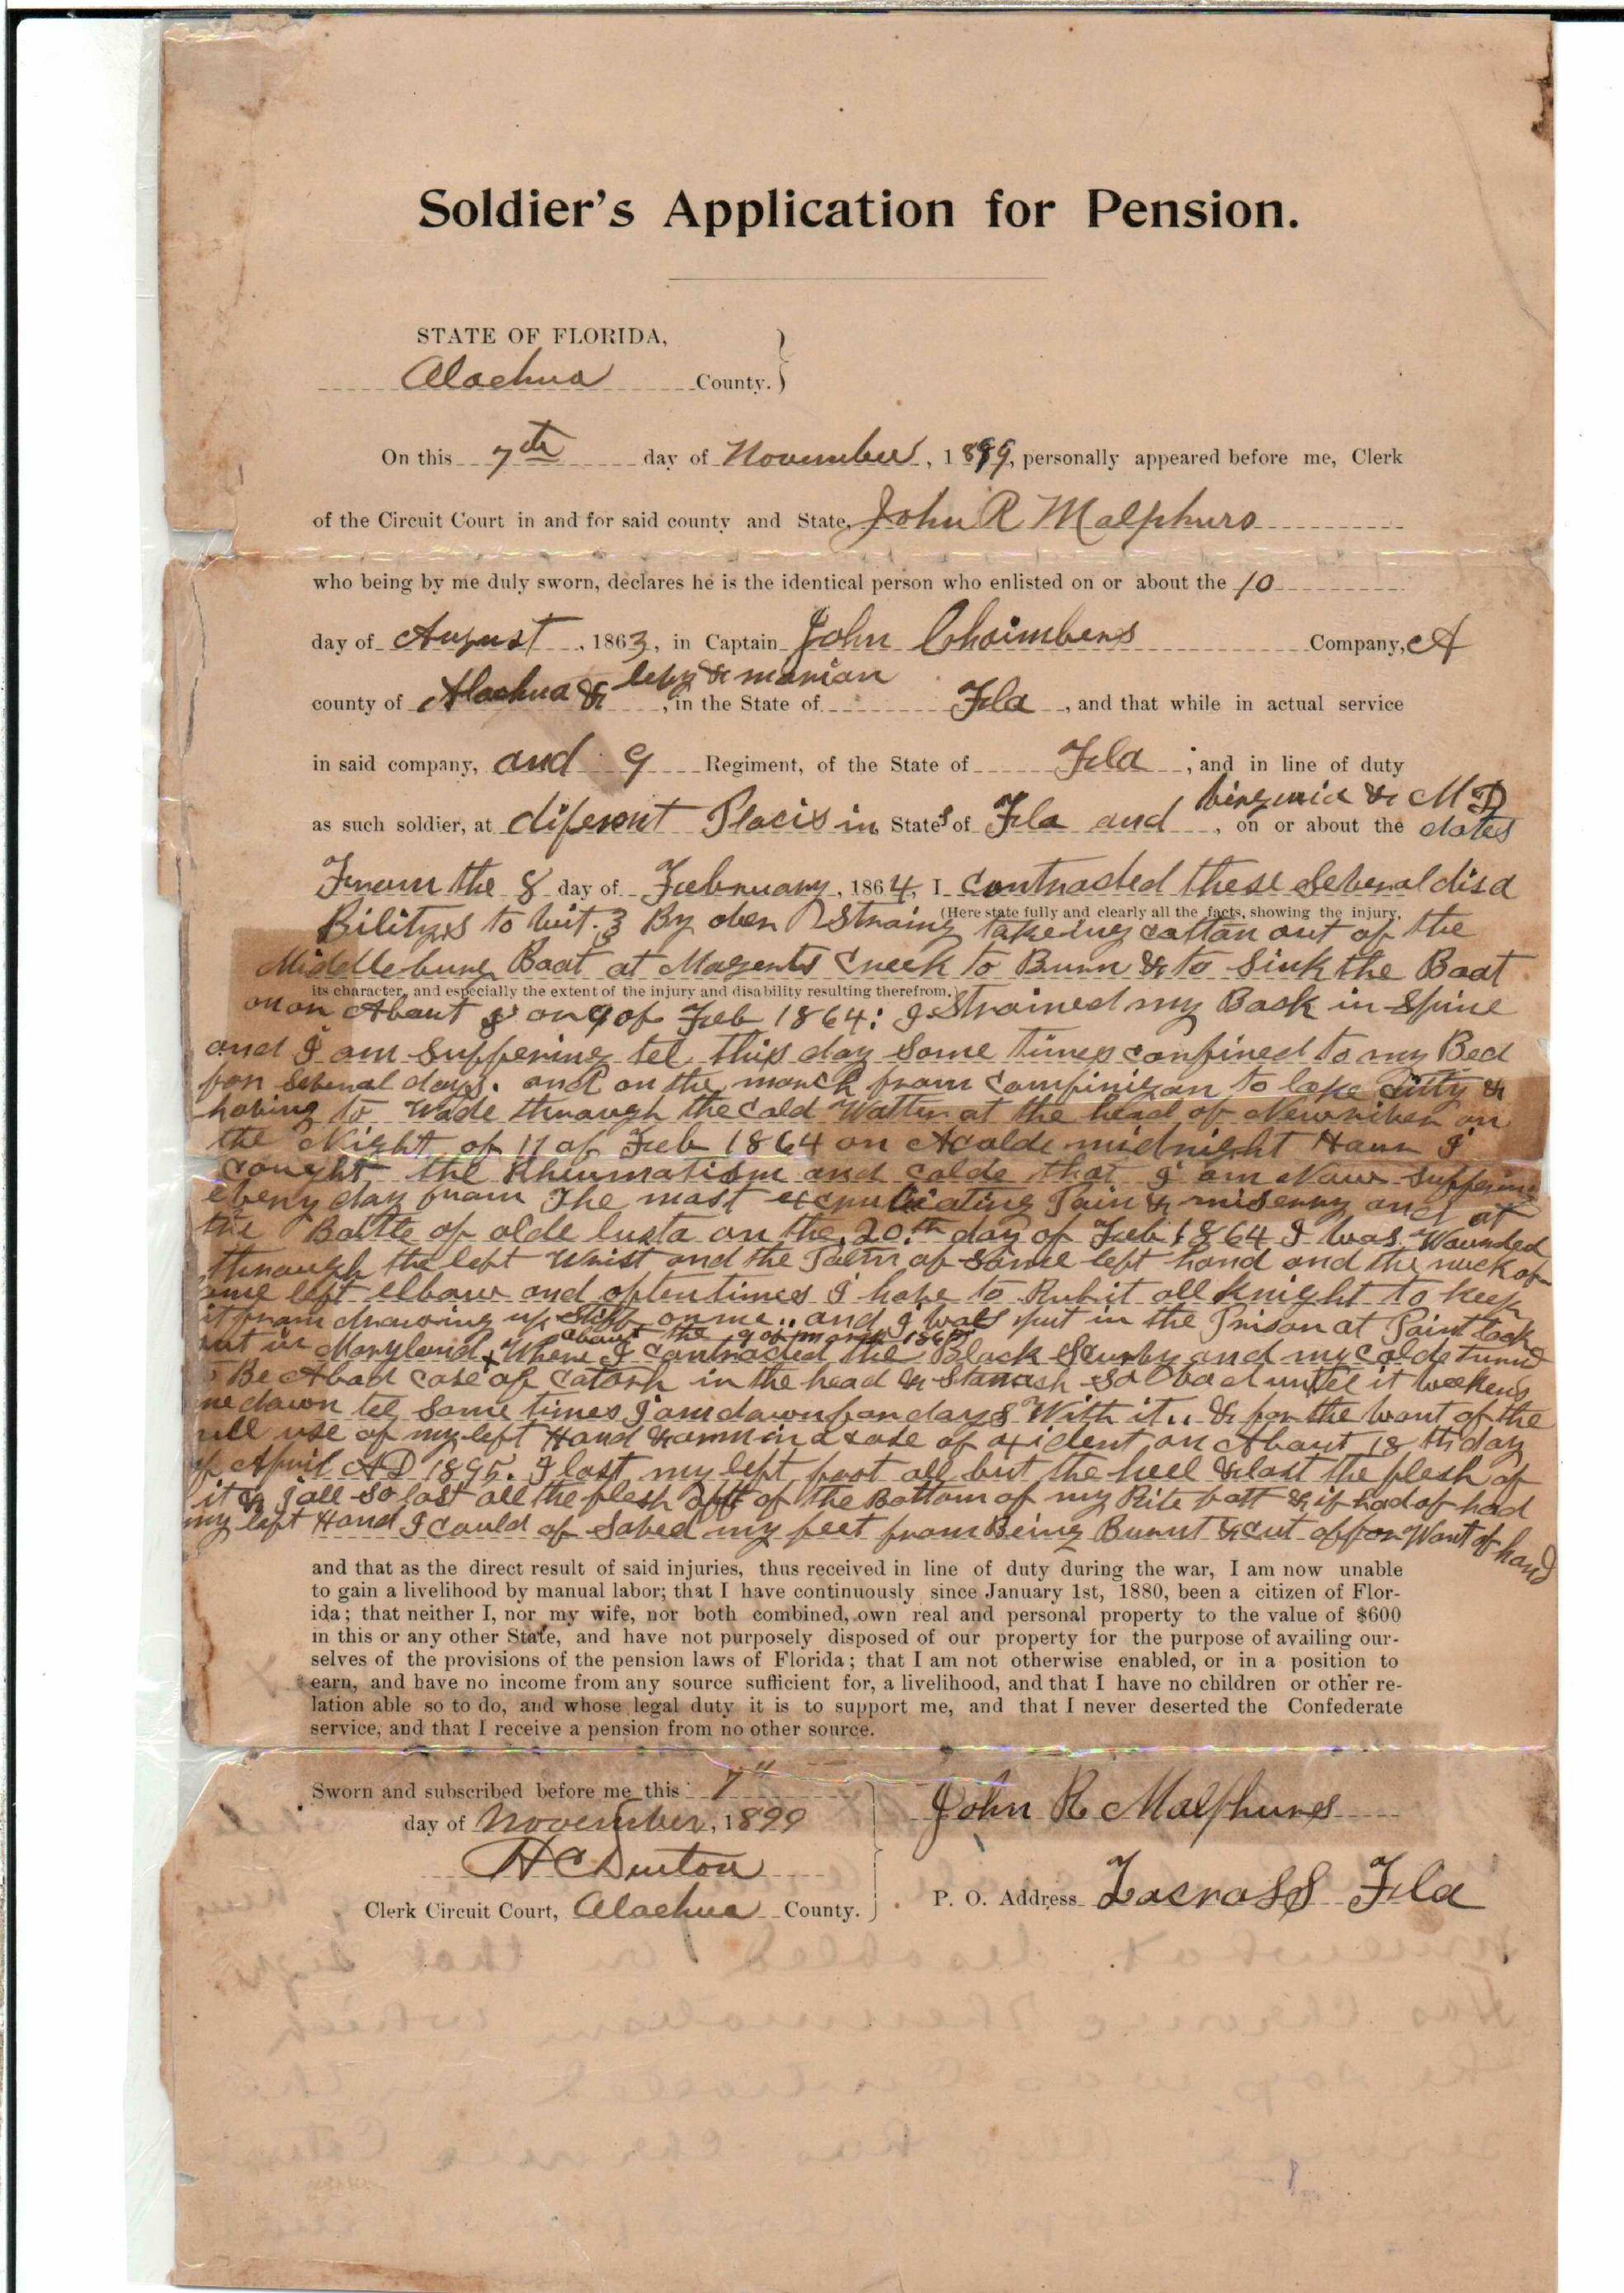 Soldier's Application for Pension.
STATE OF FLORIDA,
Alachua County.
On this 7th day of November, 1899, personally appeared before me, Clerk
of the Circuit Court in and for said county and State, John R Malphurs
who being by me duly sworn, declares he is the identical person who enlisted on or about the 10
day of August, 1863, in Captain John Chaimbers Company, A
county of Alachua & levy & marian, in the State of Fla, and that while in actual service
in said company, and 9 Regiment, of the State of Fla; and in line of duty
as such soldier, at diferent Placis in States of Fla and virginia & MD, on or about the dates
From the 8 day of Februrary, 1864, I contracted these several disa
(Here state fully and clearly all the facts, showing the injury,
Bilitys to wit. By over Straing takeing cottan out of the
Middleburg Boat at Creek to Burn & to Sink the Boat
its character, and especially the extent of the injury and disability resulting therefrom.)
on or About 8 or 9 of Feb 1864: I Strained my Back in Spine
and I am Suffering tel this day some times confined to my Bed
for several days. and on the march from to lake citty &
having to Wade through the cald Watter at the head of Newriver on
the Night of 11 of Feb 1864 on A calde midnight Hour I
cought the Rheumatism and calde that I am Now Suffering
every day from The most excruciating Pain & miserry and at
the Battle of olde lusta on the 20th day of Feb 1864 I was Wounded
through the left Wrist and the Palm of same left hand and the nuck of
same left elbow and oftentimes I have to Rub it all knight to keep
it from drawing up stiff on me.. and I was put in the Prison at Point look
out in Maryland x Where I contracted the Black Scurvy and my calde turned
about the 9 of march 1865
to Be A bad case of catarh in the head & Stamach so bad untel it weekens
me dawn tel some times I am dawn for days With it.. & for the want of the
full use of my left Hand & arm in a case of axident on About 18 th day
of April AD 1895. I lost my left foot all but the heel & lost the flesh of
it & I all so lost all the flesh off of the Bottom of my Rite foot & if had of had
my left Hand I could of saved my feet from Being Burnt & cut off for Want of hand
and that as the direct result of said injuries, thus received in line of duty during the war, I am now unable
to gain a livelihood by manual labor; that I have continuously since January 1st, 1880, been a citizen of Flor-
ida; that neither I, nor my wife, nor both combined, own real and personal property to the value of $600
in this or any other State, and have not purposely disposed of our property for the purpose of availing our-
selves of the provisions of the pension laws of Florida; that I am not otherwise enabled, or in a position to
earn, and have no income from any source sufficient for, a livelihood, and that I have no children or other re-
lation able so to do, and whose legal duty it is to support me, and that I never deserted the Confederate
service, and that I receive a pension from no other source.
Sworn and subscribed before me this 7"
day of November, 1899
H C Denton
Clerk Circuit Court, Alachua County.
John R Malphurs
P. O. Address Lacross Fla